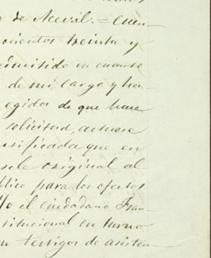 de Acevil.= Cuen
ocientos treinta y
imitido en cuanse
de mi cargo y ha
egidos de que hace
solicitud, actuase
sificada que en
sele original al
blico para los efectos
Yo el ciudadano Fran
stitucional en turno
n testigos de asisten